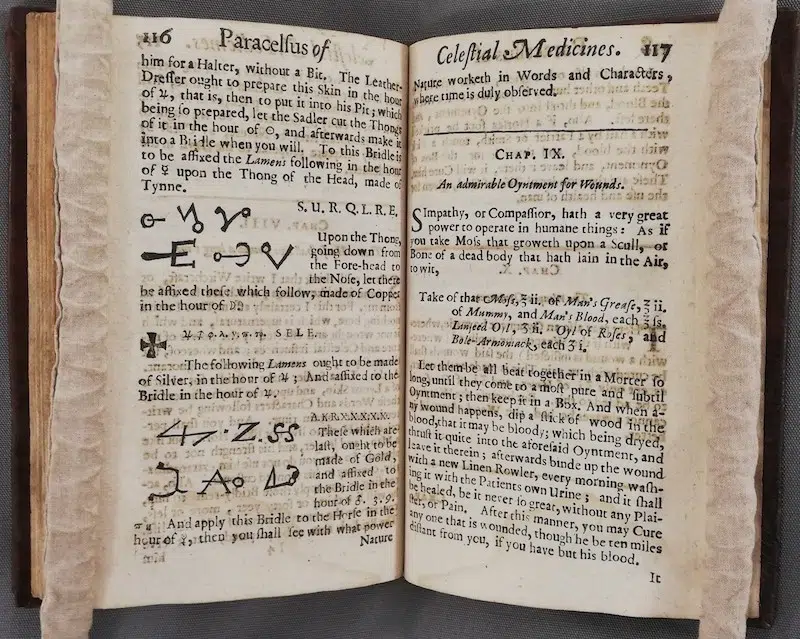 116 Paracelſus of
him for a Halter, without a Bit. The Leather-
Dreſſer ought to prepare this Skin in the hour
of ♃, that is, then to put it into his Pit; which
being ſo prepared, let the Sadler cut the Thongs
of it in the hour of ☉, and afterwards make it
into a Bridle when you will. To this Bridle is
to be affixed the Lamens following in the hour
of ☿ upon the Thong of the Head, made of
Tynne.
S. U. R. Q. L. R. E.
Upon the Thong,
going down from
the Fore-head to
the Noſe, let there
be affixed theſe which follow, made of Copper
in the hour of
S E L E.
The following Lamens ought to be made
of Silver, in the hour of ♃; And affixed to the
Bridle in the hour of ♃.
Z. SS
Theſe which are
laſt, ought to be
made of Gold,
and affixed to
the Bridle in the
hour of 8. 3. 9.
And apply this Bridle to the Horſe in the
hour of , then you ſhall ſee with what power
Nature
Celeſtial Medicines. 117
Nature worketh in Words and Characters,
whoſe time is duly obſerved.
CHAP. IX.
An admirable Oyntment for Wounds.
SImpathy, or Compaſſior, hath a very great
power to operate in humane things: As if
you take Moſs that groweth upon a Scull, or
Bone of a dead body that hath lain in the Air,
to wit,
Take of that Moſs, ℥ ii. of Man's Greaſe, ℥ ii.
of Mummy, and Man's Blood, each ℥ ſs.
Linſeed Oyl, ℥ ii. Oyl of Roſes, and
Bole-Armoniack, each ℥ i.
Let them be all beat together in a Morter ſo
long, until they come to a moſt pure and ſubtil
Oyntment; then keep it in a Box. And when a-
ny wound happens, dip a ſtick of wood in the
blood, that it may be bloody; which being dryed,
thruſt it quite into the aforeſaid Oyntment, and
leave it therein; afterwards binde up the wound
with a new Linen Rowler, every morning waſh-
ing it with the Patients own Urine; and it ſhall
be healed, be it never ſo great, without any Plai-
ſter, or Pain. After this manner, you may Cure
any one that is wounded, though he be ten miles
diſtant from you, if you have but his blood.
It